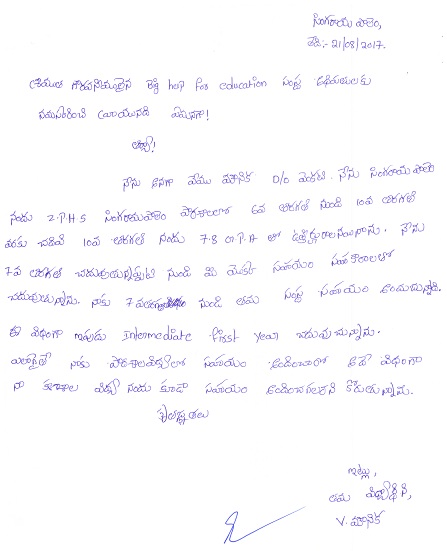 సింగరాయపాలెం,
తేదీ:- 21/08/2017.
గౌరవనీయులైన hop for education సంస్థ అధిపతులకు
నమస్కరించి వ్రాయునది ఏమనగా!
అయ్యా!
నేను అనగా వేము మౌనిక D/o వెంకటి. నేను సింగరాయపాలెం
నందు Z.P.H.S సింగరాయపాలెం పాఠశాలలో 6వ తరగతి నుండి 10వ తరగతి
వరకు చదివి 10వ తరగతి నందు 7.8 G.P.A తో ఉత్తీర్ణురాలనయినాను. నేను
7వ తరగతి చదువుతున్నప్పటి నుండి మీ యొక్క సహాయం సహకారాలతో
చదువుతున్నాను. నాకు 7 నుండి తమ సంస్థ సహాయం అందుచున్నది.
ఈ విధంగా ఇపుడు Intermediate first year చదువుచున్నాను.
ఎలాగైతే నాకు పాఠశాలవిద్యలో సహాయం అందించారో అదే విధంగా
నా కళాశాల విద్య నందు కూడా సహాయం అందించగలరని కోరుతున్నాను.
కృతజ్ఞతలు
ఇట్లు,
తమ విద్యార్థిని,
V. మౌనిక